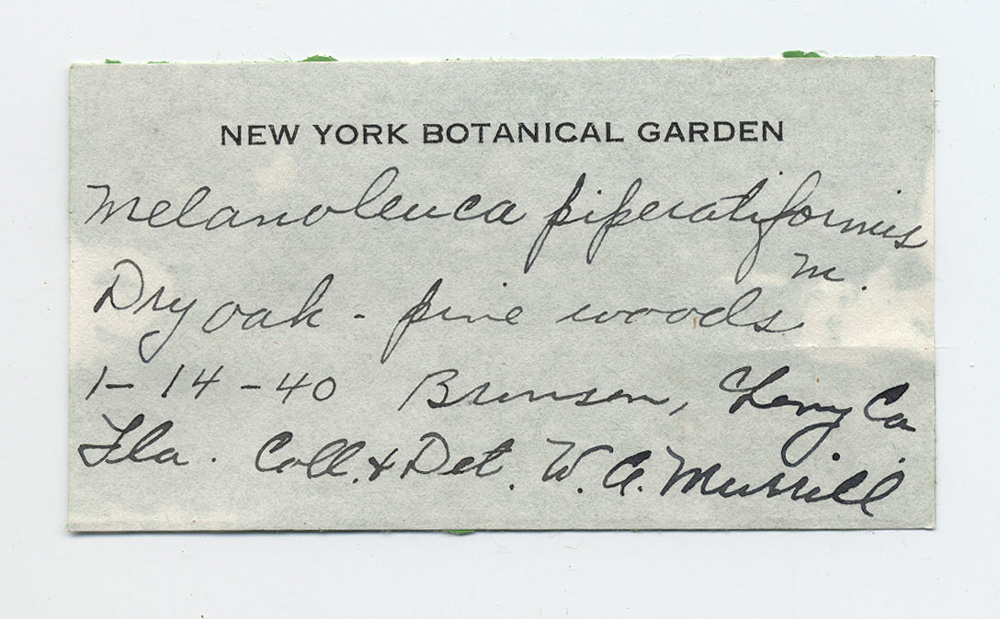 NEW YORK BOTANICAL GARDEN
Melanoleuca piperatiformis
M.
Dry oak - pine woods
1-14-40 Bronson, Levy Co.
Fla. Coll. & Det. W. A. Murrill